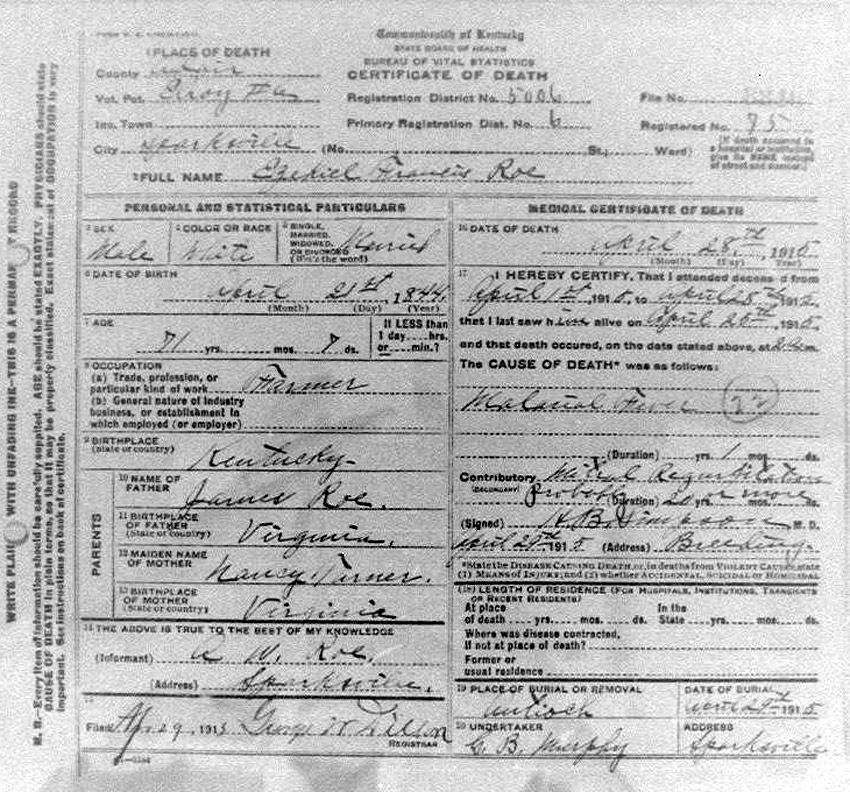 Commonwealth of Kentucky
STATE BOARD OF HEALTH
BUREAU OF VITAL STATISTICS
CERTIFICATE OF DEATH
1 PLACE OF DEATH
County
Vot. Pct.
Inc. Town
City Sparksville (No. St.; Ward)
Registration District No. 5006 File No.
Primary Registration Dist. No. 6 Registered No. 75
(If death occurred in a hospital or institution, give its NAME instead of street and number.)
2 FULL NAME Ezekiel Francis Roe
PERSONAL AND STATISTICAL PARTICULARS
3 SEX Male
4 COLOR OR RACE White
5 SINGLE, MARRIED, WIDOWED, OR DIVORCED (Write the word) Married
6 DATE OF BIRTH
April 21st, 1844
(Month) (Day) (Year)
7 AGE
71 yrs. mos. 7 ds.
If LESS than 1 day hrs. or min.?
8 OCCUPATION
(a) Trade, profession, or particular kind of work Farmer
(b) General nature of industry business, or establishment in which employed (or employer)
9 BIRTHPLACE (State or country) Kentucky
PARENTS
10 NAME OF FATHER James Roe.
11 BIRTHPLACE OF FATHER (State or country) Virginia.
12 MAIDEN NAME OF MOTHER Nancy Turner.
13 BIRTHPLACE OF MOTHER (State or country) Virginia
14 THE ABOVE IS TRUE TO THE BEST OF MY KNOWLEDGE
(Informant) W. Roe.
(Address) Sparksville.
15
Filed Apr 29, 1915 George W
REGISTRAR
MEDICAL CERTIFICATE OF DEATH
16 DATE OF DEATH
April 28th, 1915
(Month) (Day) (Year)
17 I HEREBY CERTIFY, That I attended deceased from
April 1st, 1915, to April 28th 1915,
that I last saw him alive on April 26th, 1915,
and that death occured, on the date stated above, at m.
The CAUSE OF DEATH* was as follows:
Malarial Fever 
(Duration) yrs. 1 mos. ds.
Contributory Mitral Regurgitation
(SECONDARY) Probably (Duration) 20 or more
(Signed) H. B. Simpson M. D.
April 29th 1915 (Address) Breeding.
*State the DISEASE CAUSING DEATH, or, in deaths from VIOLENT CAUSES, state
(1) MEANS OF INJURY; and (2) whether ACCIDENTAL, SUICIDAL or HOMICIDAL
(18) LENGTH OF RESIDENCE (FOR HOSPITALS, INSTITUTIONS, TRANSIENTS OR RECENT RESIDENTS)
At place of death yrs. mos. ds. In the State yrs. mos. ds.
Where was disease contracted, If not at place of death?
Former or usual residence
19 PLACE OF BURIAL OR REMOVAL Antioch
DATE OF BURIAL April 29th 1915
20 UNDERTAKER G. B. Murphy
ADDRESS Sparksville
WRITE PLAINLY WITH UNFADING INK—THIS IS A PERMANENT RECORD
N. B.—Every item of information should be carefully supplied. AGE should be stated EXACTLY. PHYSICIANS should state
CAUSE OF DEATH in plain terms, so that it may be properly classified. Exact statement of OCCUPATION is very
important. See instructions on back of certificate.